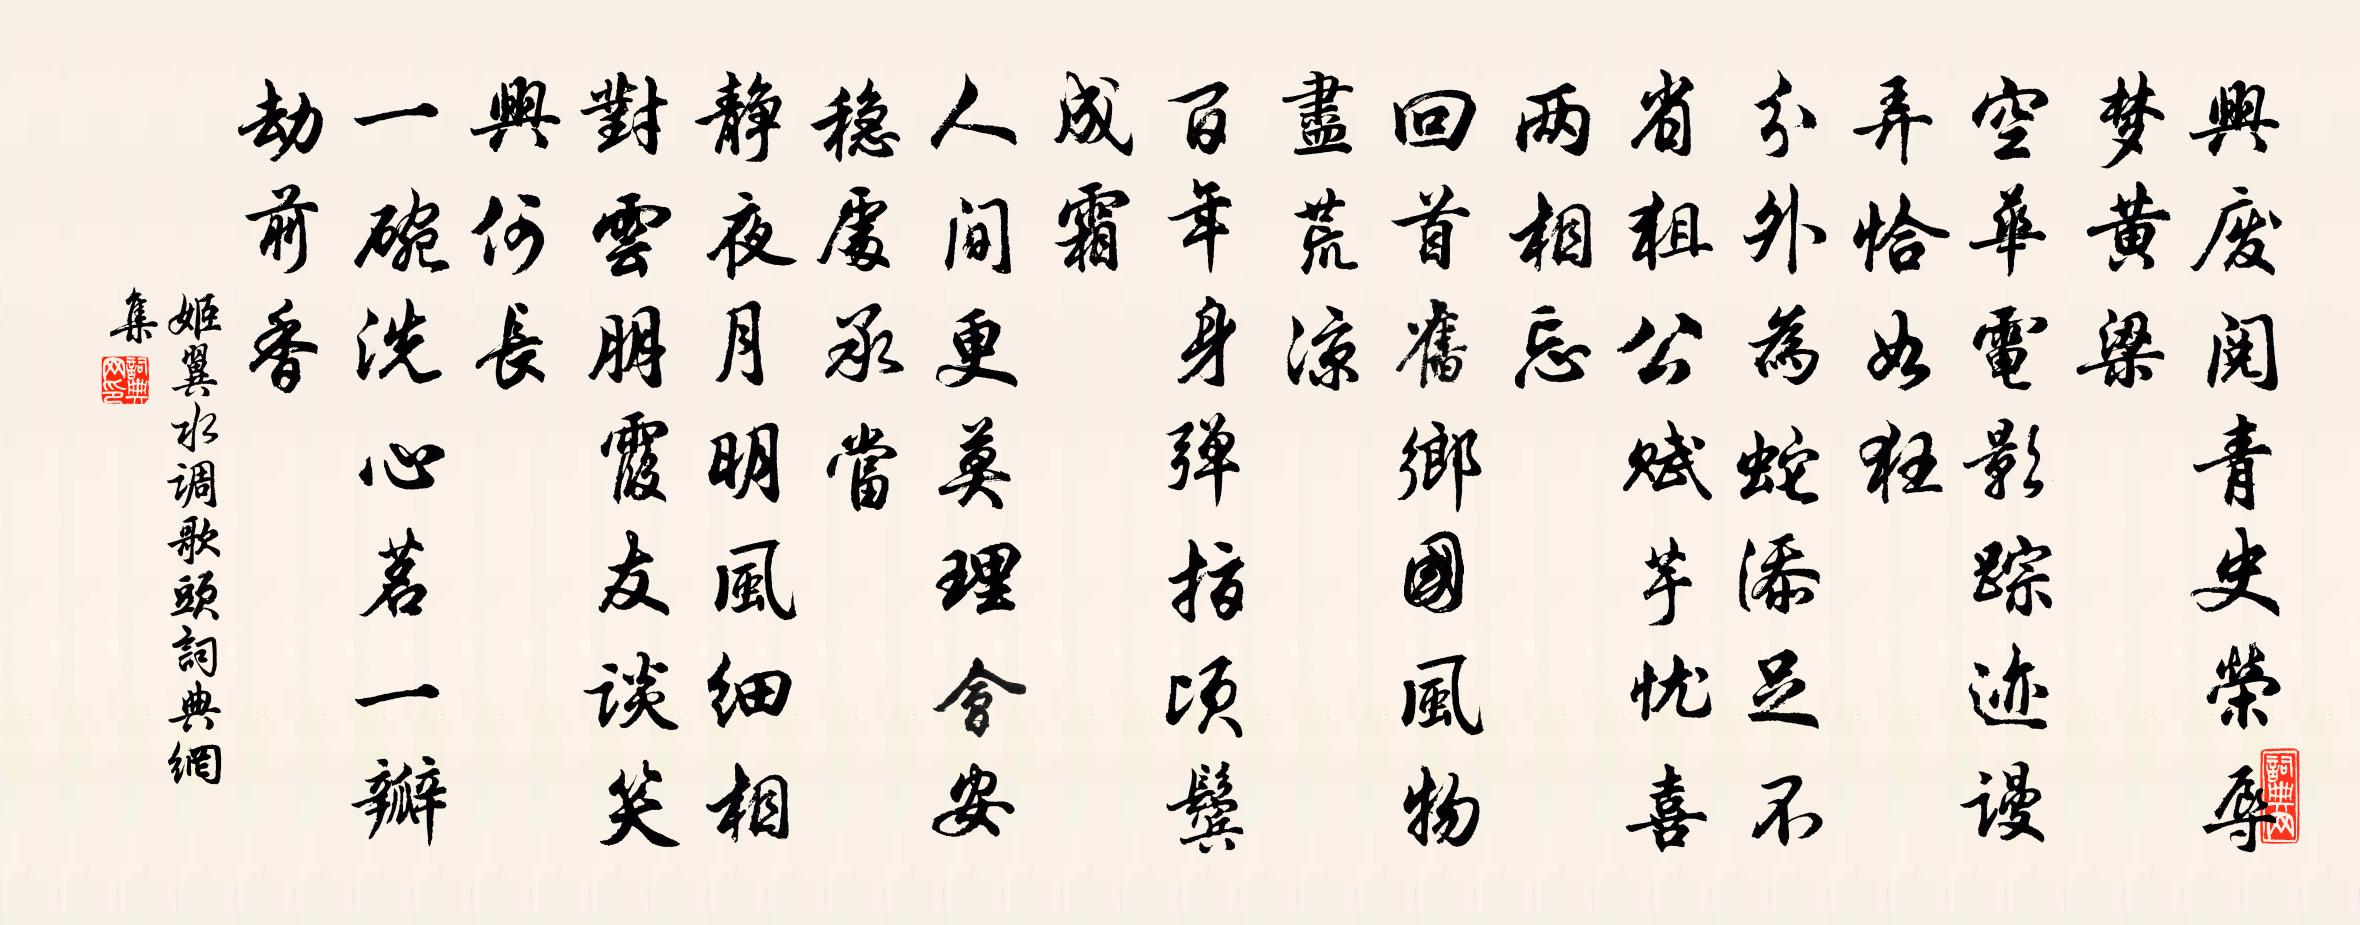 興废阅青史榮辱
梦黄粱
空華電影踪迹谩
弄恰如狂
分外為蛇添足不
省狙公赋芋忧喜
两相忘
回首舊鄉國風物
盡荒涼
百年身弹指顷鬓
成霜
人间更莫理會安
稳處承當
静夜月明風细相
對雲朋霞友谈笑
興何長
一碗洗心茗一瓣
劫前香
姬翼水调歌頭詞典網
集
詞典网
詞典网印